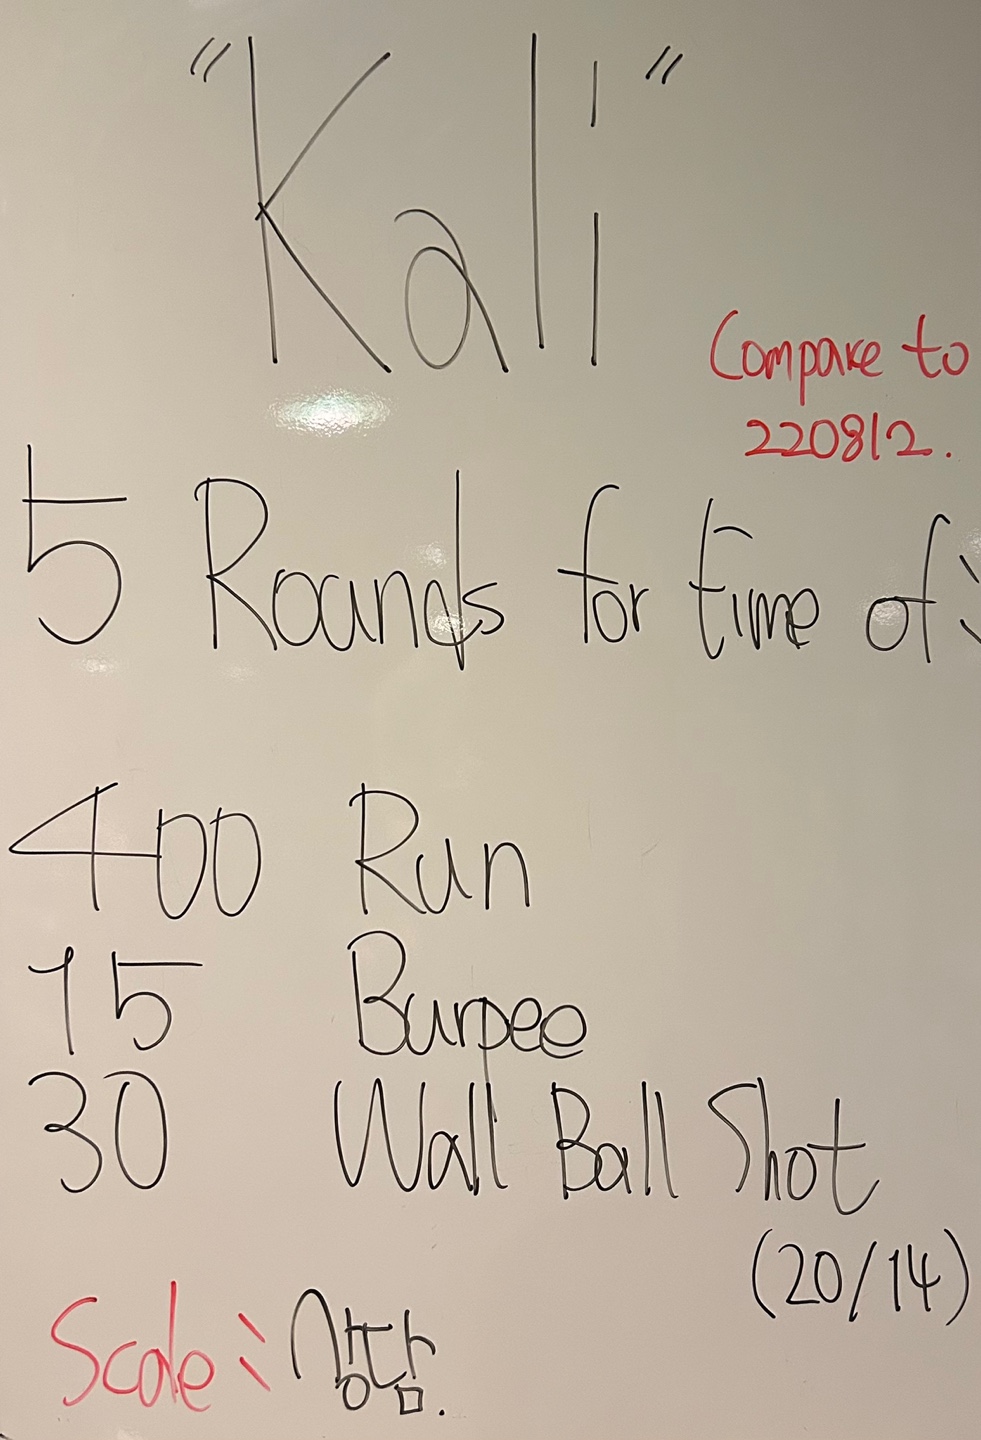 "Kali"
Compare to
220812.
5 Rounds for time of:
400 Run
15 Burpee
30 Wall Ball Shot
(20/14)
Scale: 상담.